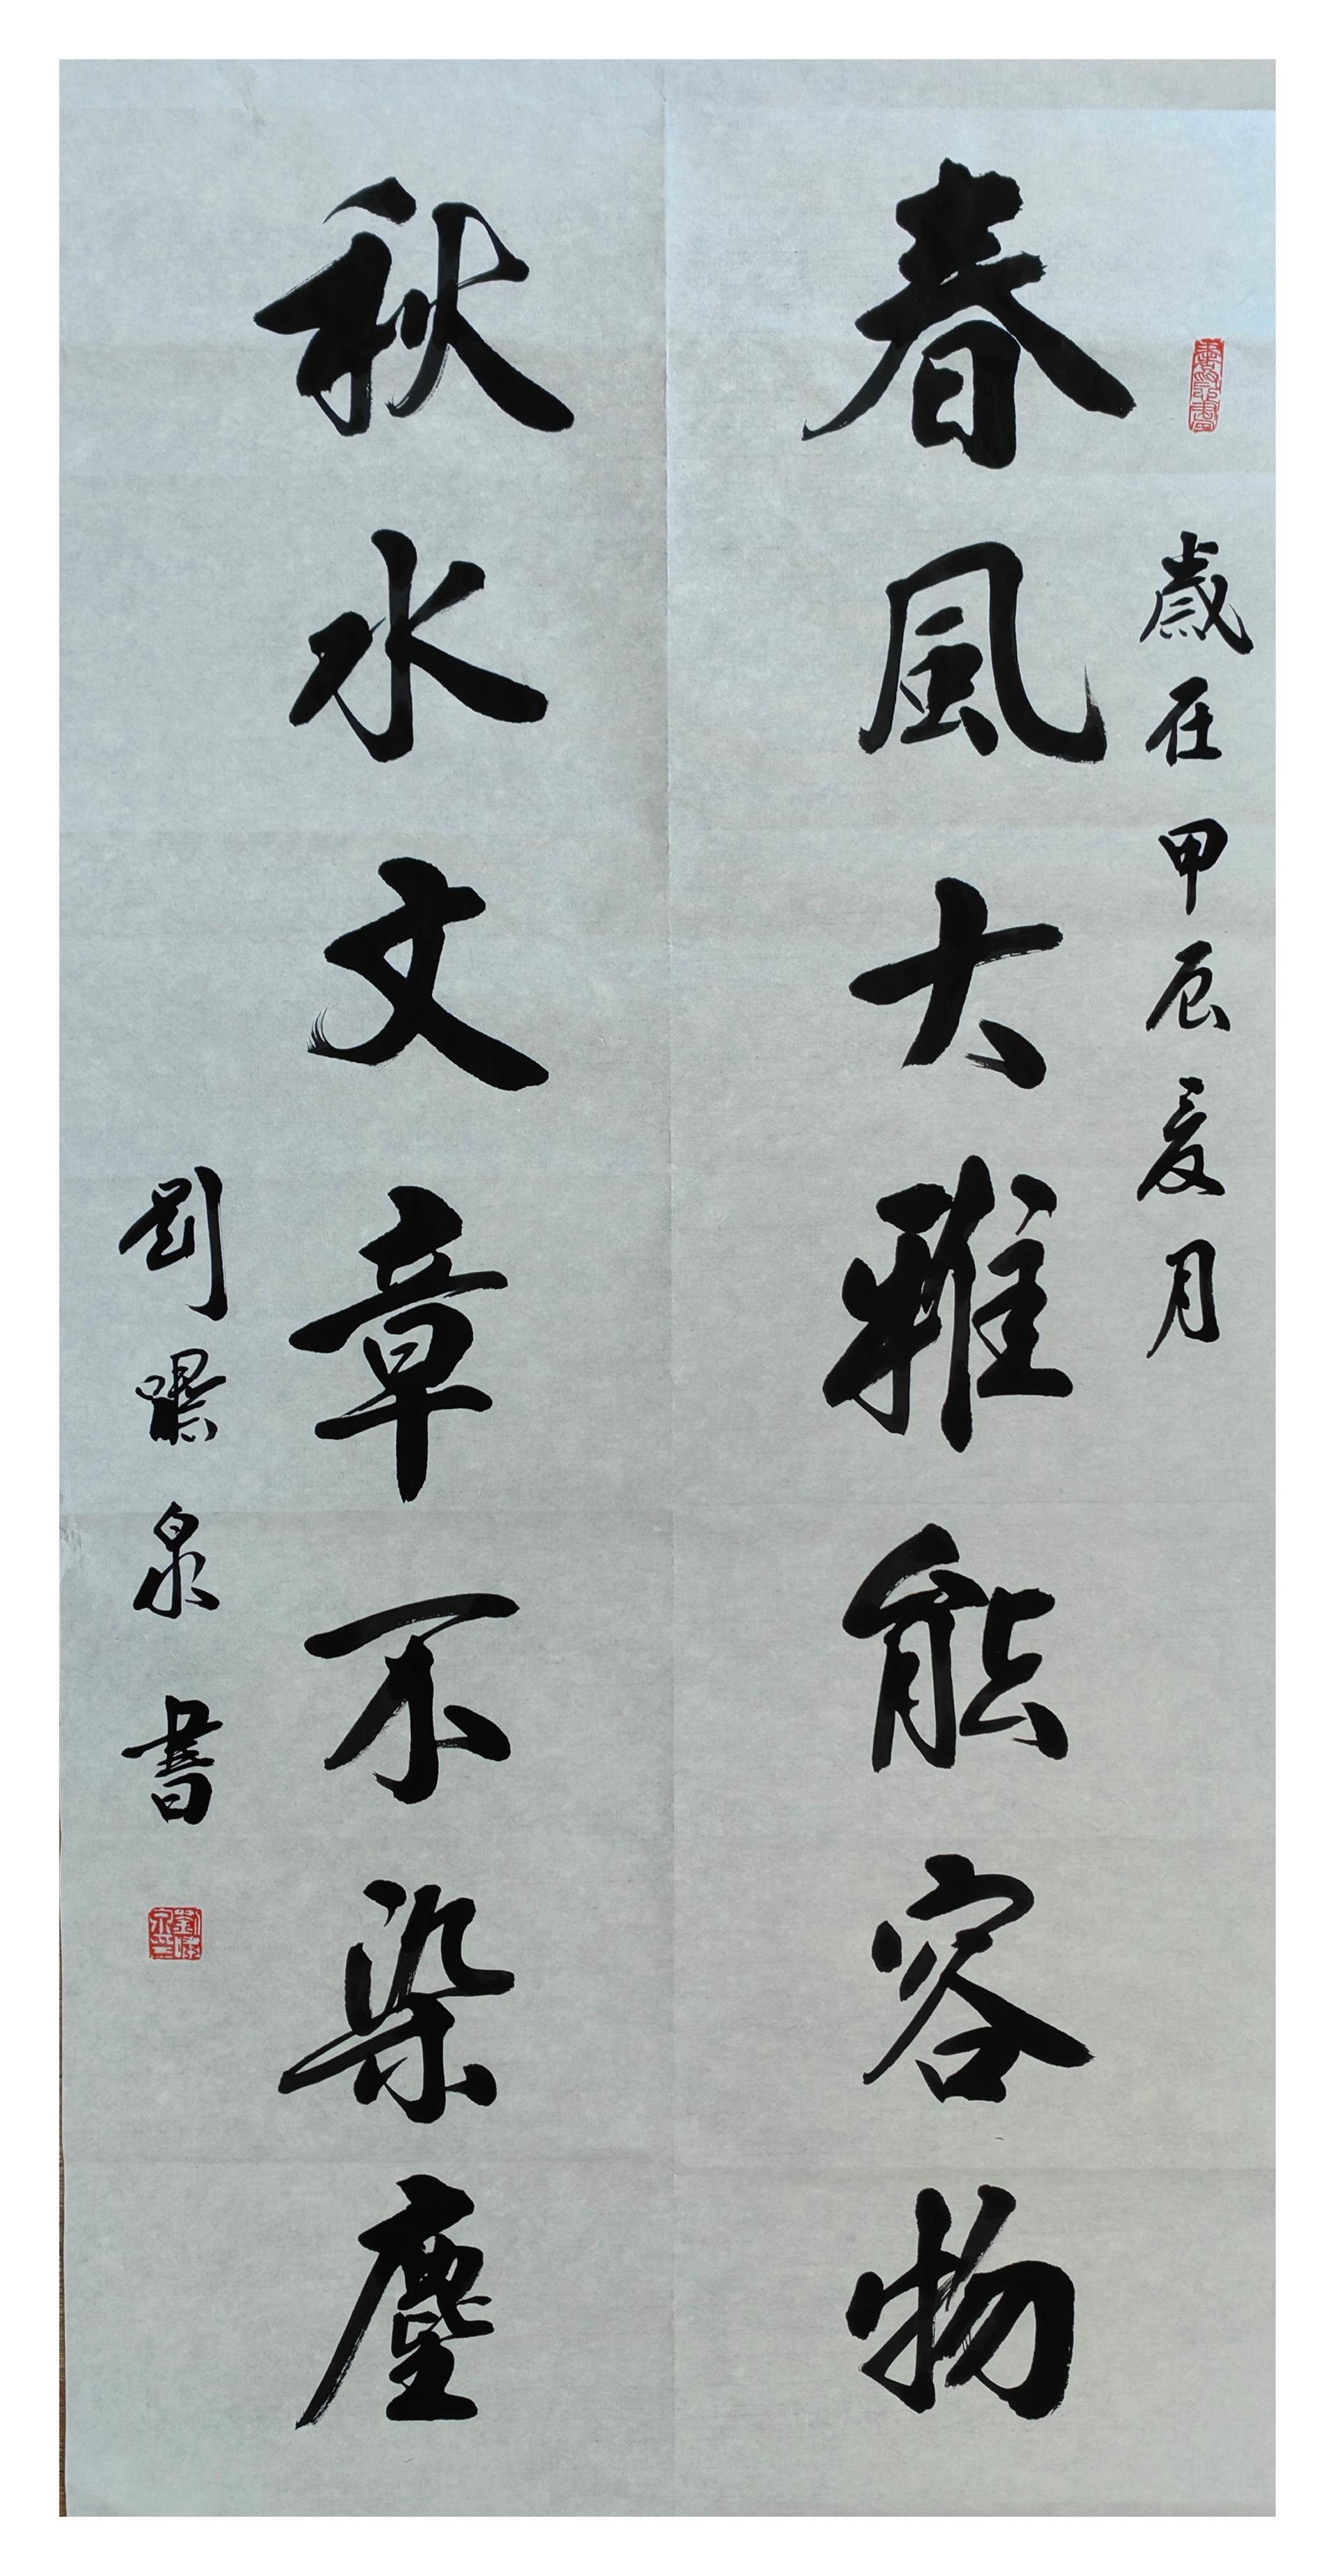 歲在甲辰夏月
春風大雅能容物
秋水文章不染塵
劉泉書